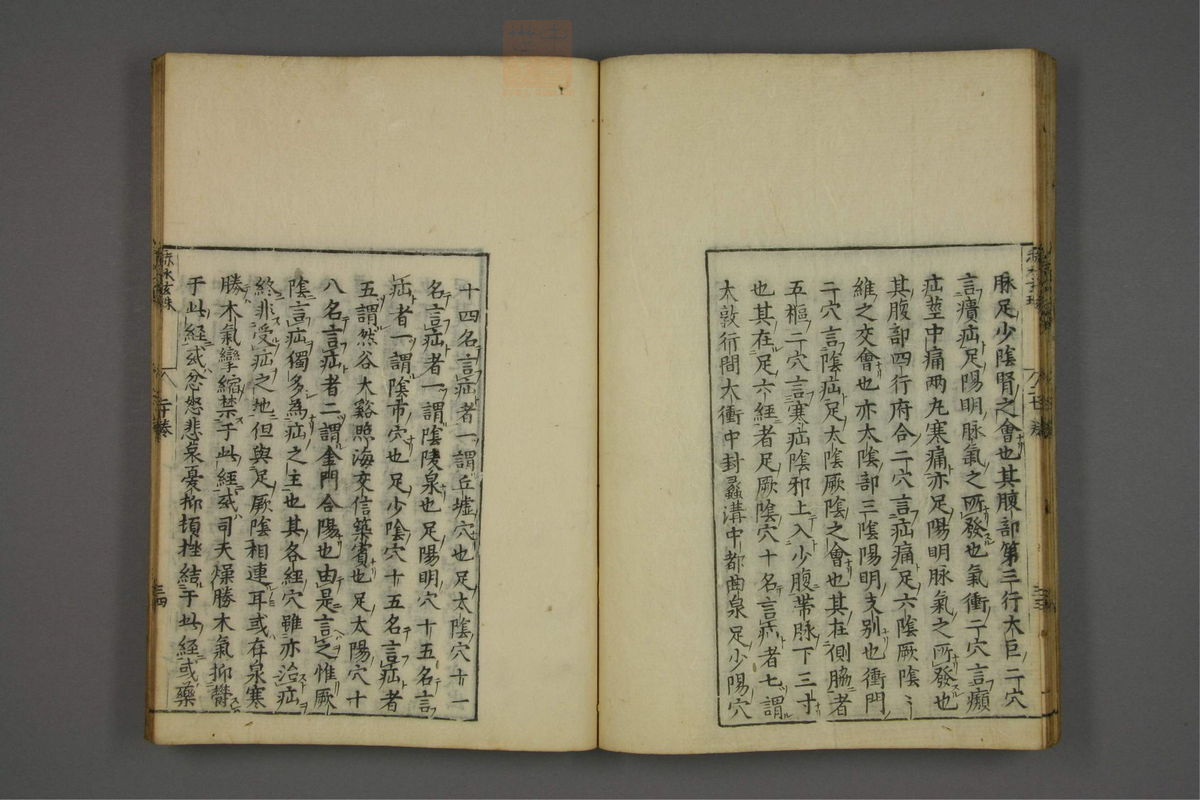 脉足少陰腎之會也其腹部第三行大巨二穴
言㿉疝足陽明脉氣之所發也氣衝二穴言癩
疝莖中痛兩丸寒痛亦足陽明脉氣之所發也
其腹部四行府合二穴言疝痛足六陰厥陰
維之交會也亦太陰部三陰陽明支別也衝門
二穴言陰疝足太陰厥陰之會也其在側脇者
五樞二穴言寒疝陰邪上入少腹帶脉下三寸
也其在足六經者足厥陰穴十名言疝者七謂
太敦行間太衝中封蠡溝中都曲泉足少陽穴
十四名言疝者一謂丘墟穴也足太陰穴十一
名言疝者一謂陰陵泉也足陽明穴十五名言
疝者一謂陰市穴也足少陰穴十五名言疝者
五謂然谷太谿照海交信築賓也足太陽穴十
八名言疝者二謂金門合陽也由是言之惟厥
陰言疝獨多為疝之主也其各經穴雖亦治疝
終非受疝之地但與足厥陰相連耳或在泉寒
勝木氣攣縮禁于此經或司天燥勝木氣抑鬱
于此經或忿怒悲哀憂抑頓挫結于此經或藥
二十卷
三四